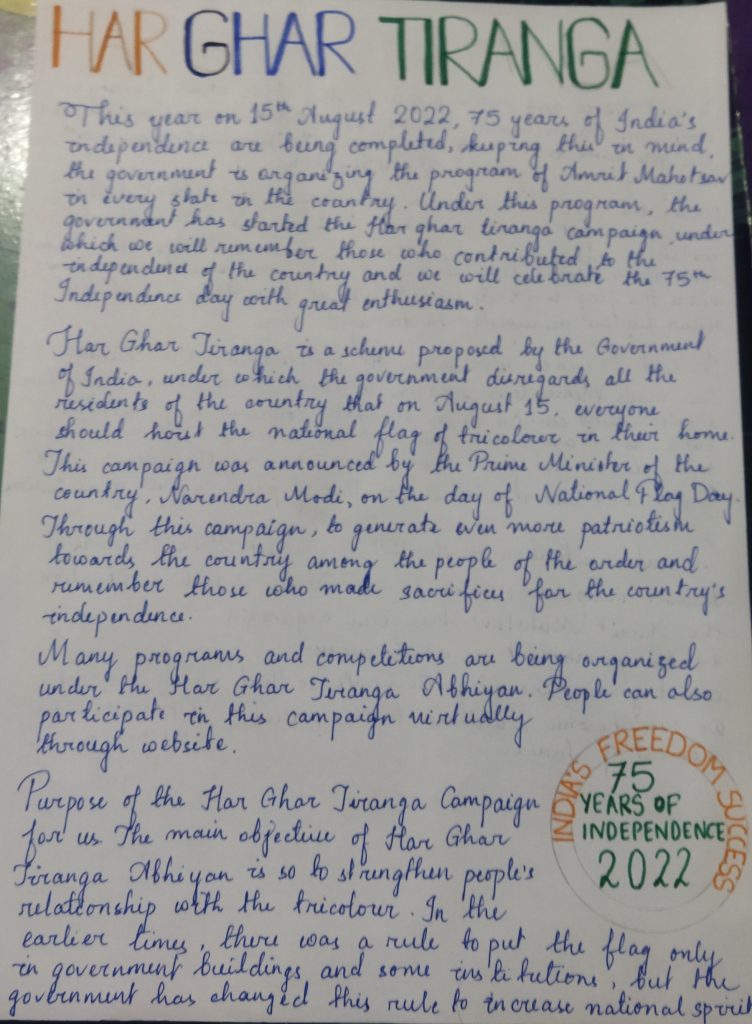 HAR GHAR TIRANGA
This year on 15th August 2022, 75 years of India's
independence are being completed, keeping this in mind,
the government is organizing the program of Amrit Mahotsav
in every state in the country. Under this program, the
government has started the Har ghar tiranga campaign under
which we will remember those who contributed to the
independence of the country and we will celebrate the 75th
Independence day with great enthusiasm.
Har Ghar Tiranga is a scheme proposed by the Government
of India, under which the government disregards all the
residents of the country that on August 15, everyone
should hoist the national flag of tricolour in their home.
This campaign was announced by the Prime Minister of the
country, Narendra Modi, on the day of National Flag Day.
Through this campaign, to generate even more patriotism
towards the country among the people of the order and
remember those who made sacrifices for the country's
independence.
Many programs and competitions are being organized
under the Har Ghar Tiranga Abhiyan. People can also
participate in this campaign virtually
through website.
Purpose of the Har Ghar Tiranga Campaign
for us. The main objective of Har Ghar
Tiranga Abhiyan is so to strengthen people's
relationship with the tricolour. In the
earlier times, there was a rule to put the flag only
in government buildings and some institutions, but the
government has changed this rule to increase national spirit
INDIA'S FREEDOM SUCCESS
75
YEARS OF
INDEPENDENCE
2022